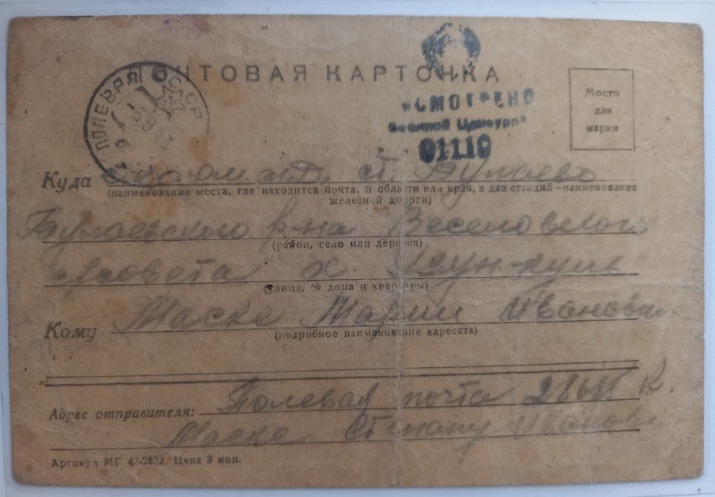 ПОЧТОВАЯ КАРТОЧКА
ПОЛЕВАЯ СССР
ПРОСМОТРЕНО
Военной Цензурой
01110
Место
для
марки
Куда ст. Булаево
(наименование места, где находится почта, и области или края, а для станций—наименование
железной дороги)
Булаевского р-на Веселовского
(район, село или деревня)
с/совета х.
(улица, № дома и квартиры)
Кому Маске Марии Ивановне
(подробное наименование адресата)
Адрес отправителя: Полевая почта К.
Маске Степану Иванов
Артикул МГ Цена 3 коп.